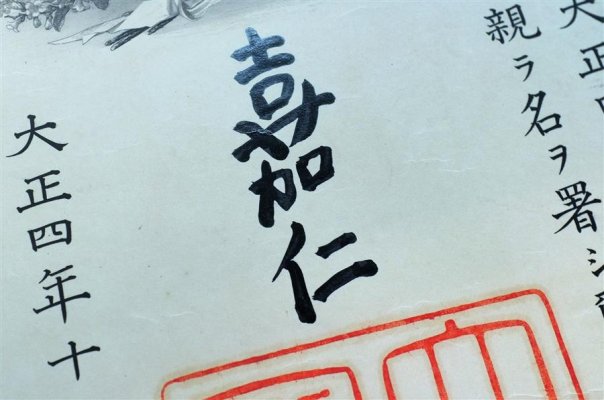 大正
親ラ名ヲ署シ
嘉仁
大正四年十